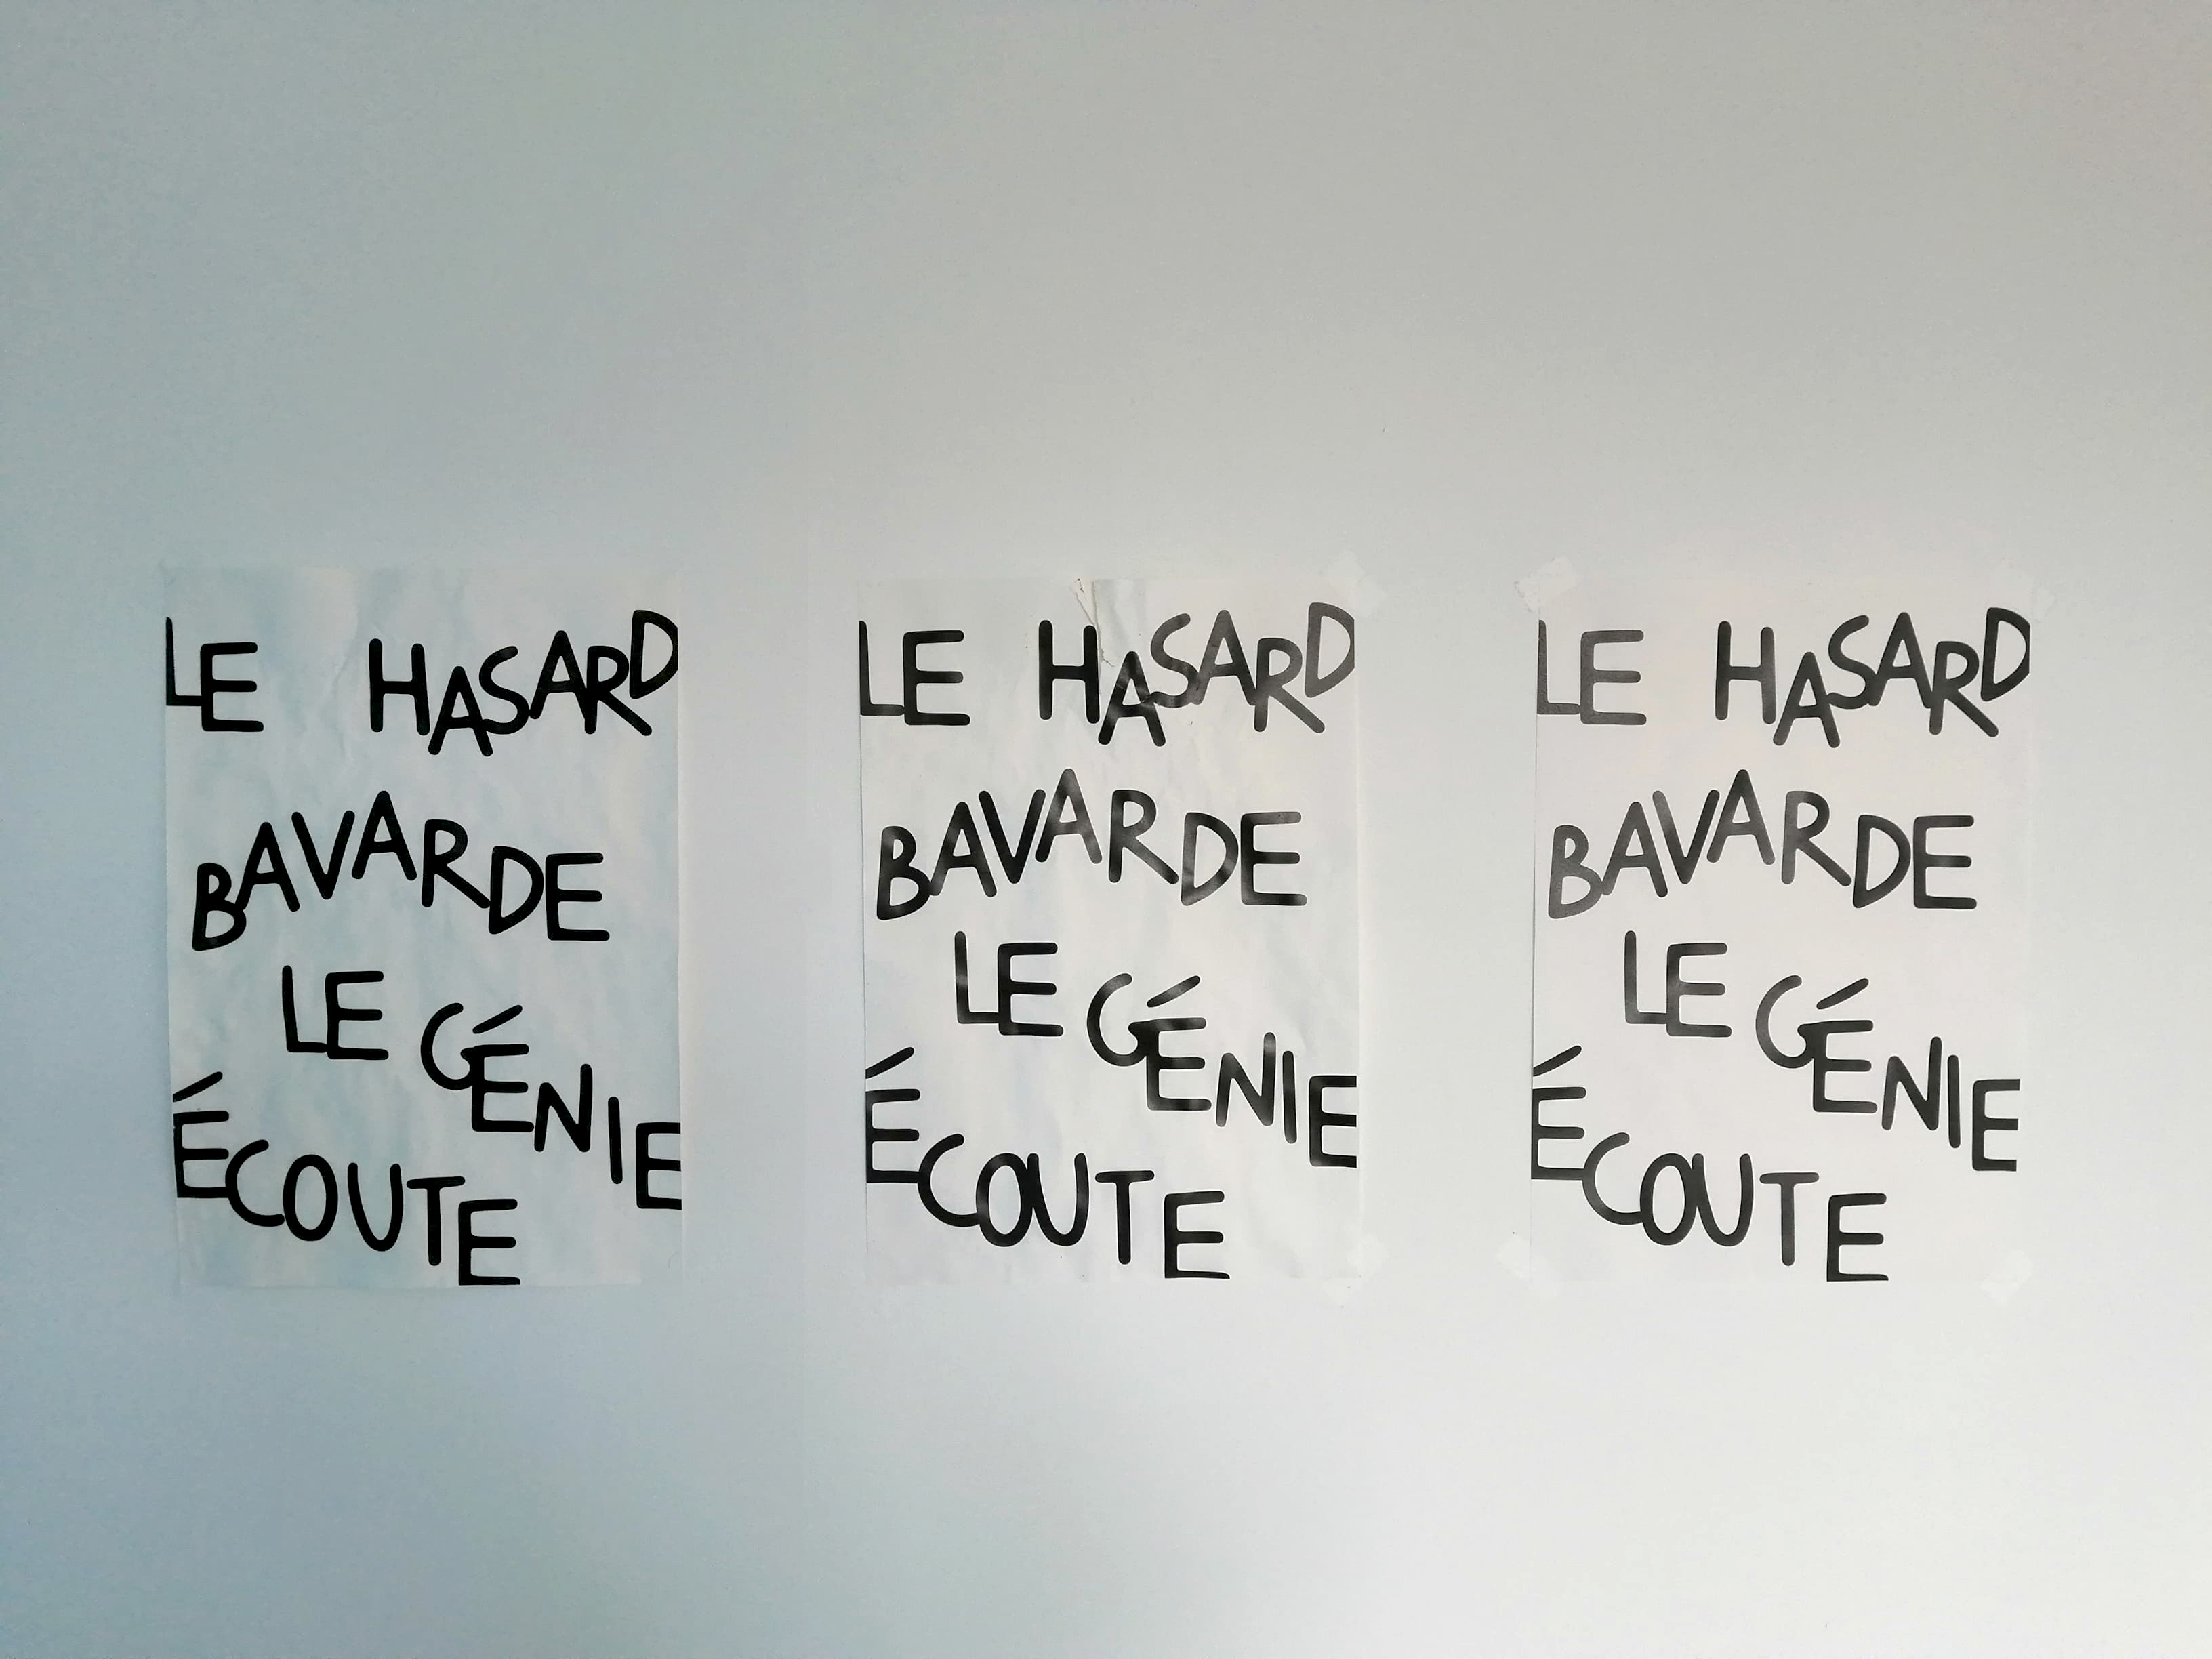 LE HASARD
BAVARDE
LE GÉNIE
ÉCOUTE
LE HASARD
BAVARDE
LE GÉNIE
ÉCOUTE
LE HASARD
BAVARDE
LE GÉNIE
ÉCOUTE